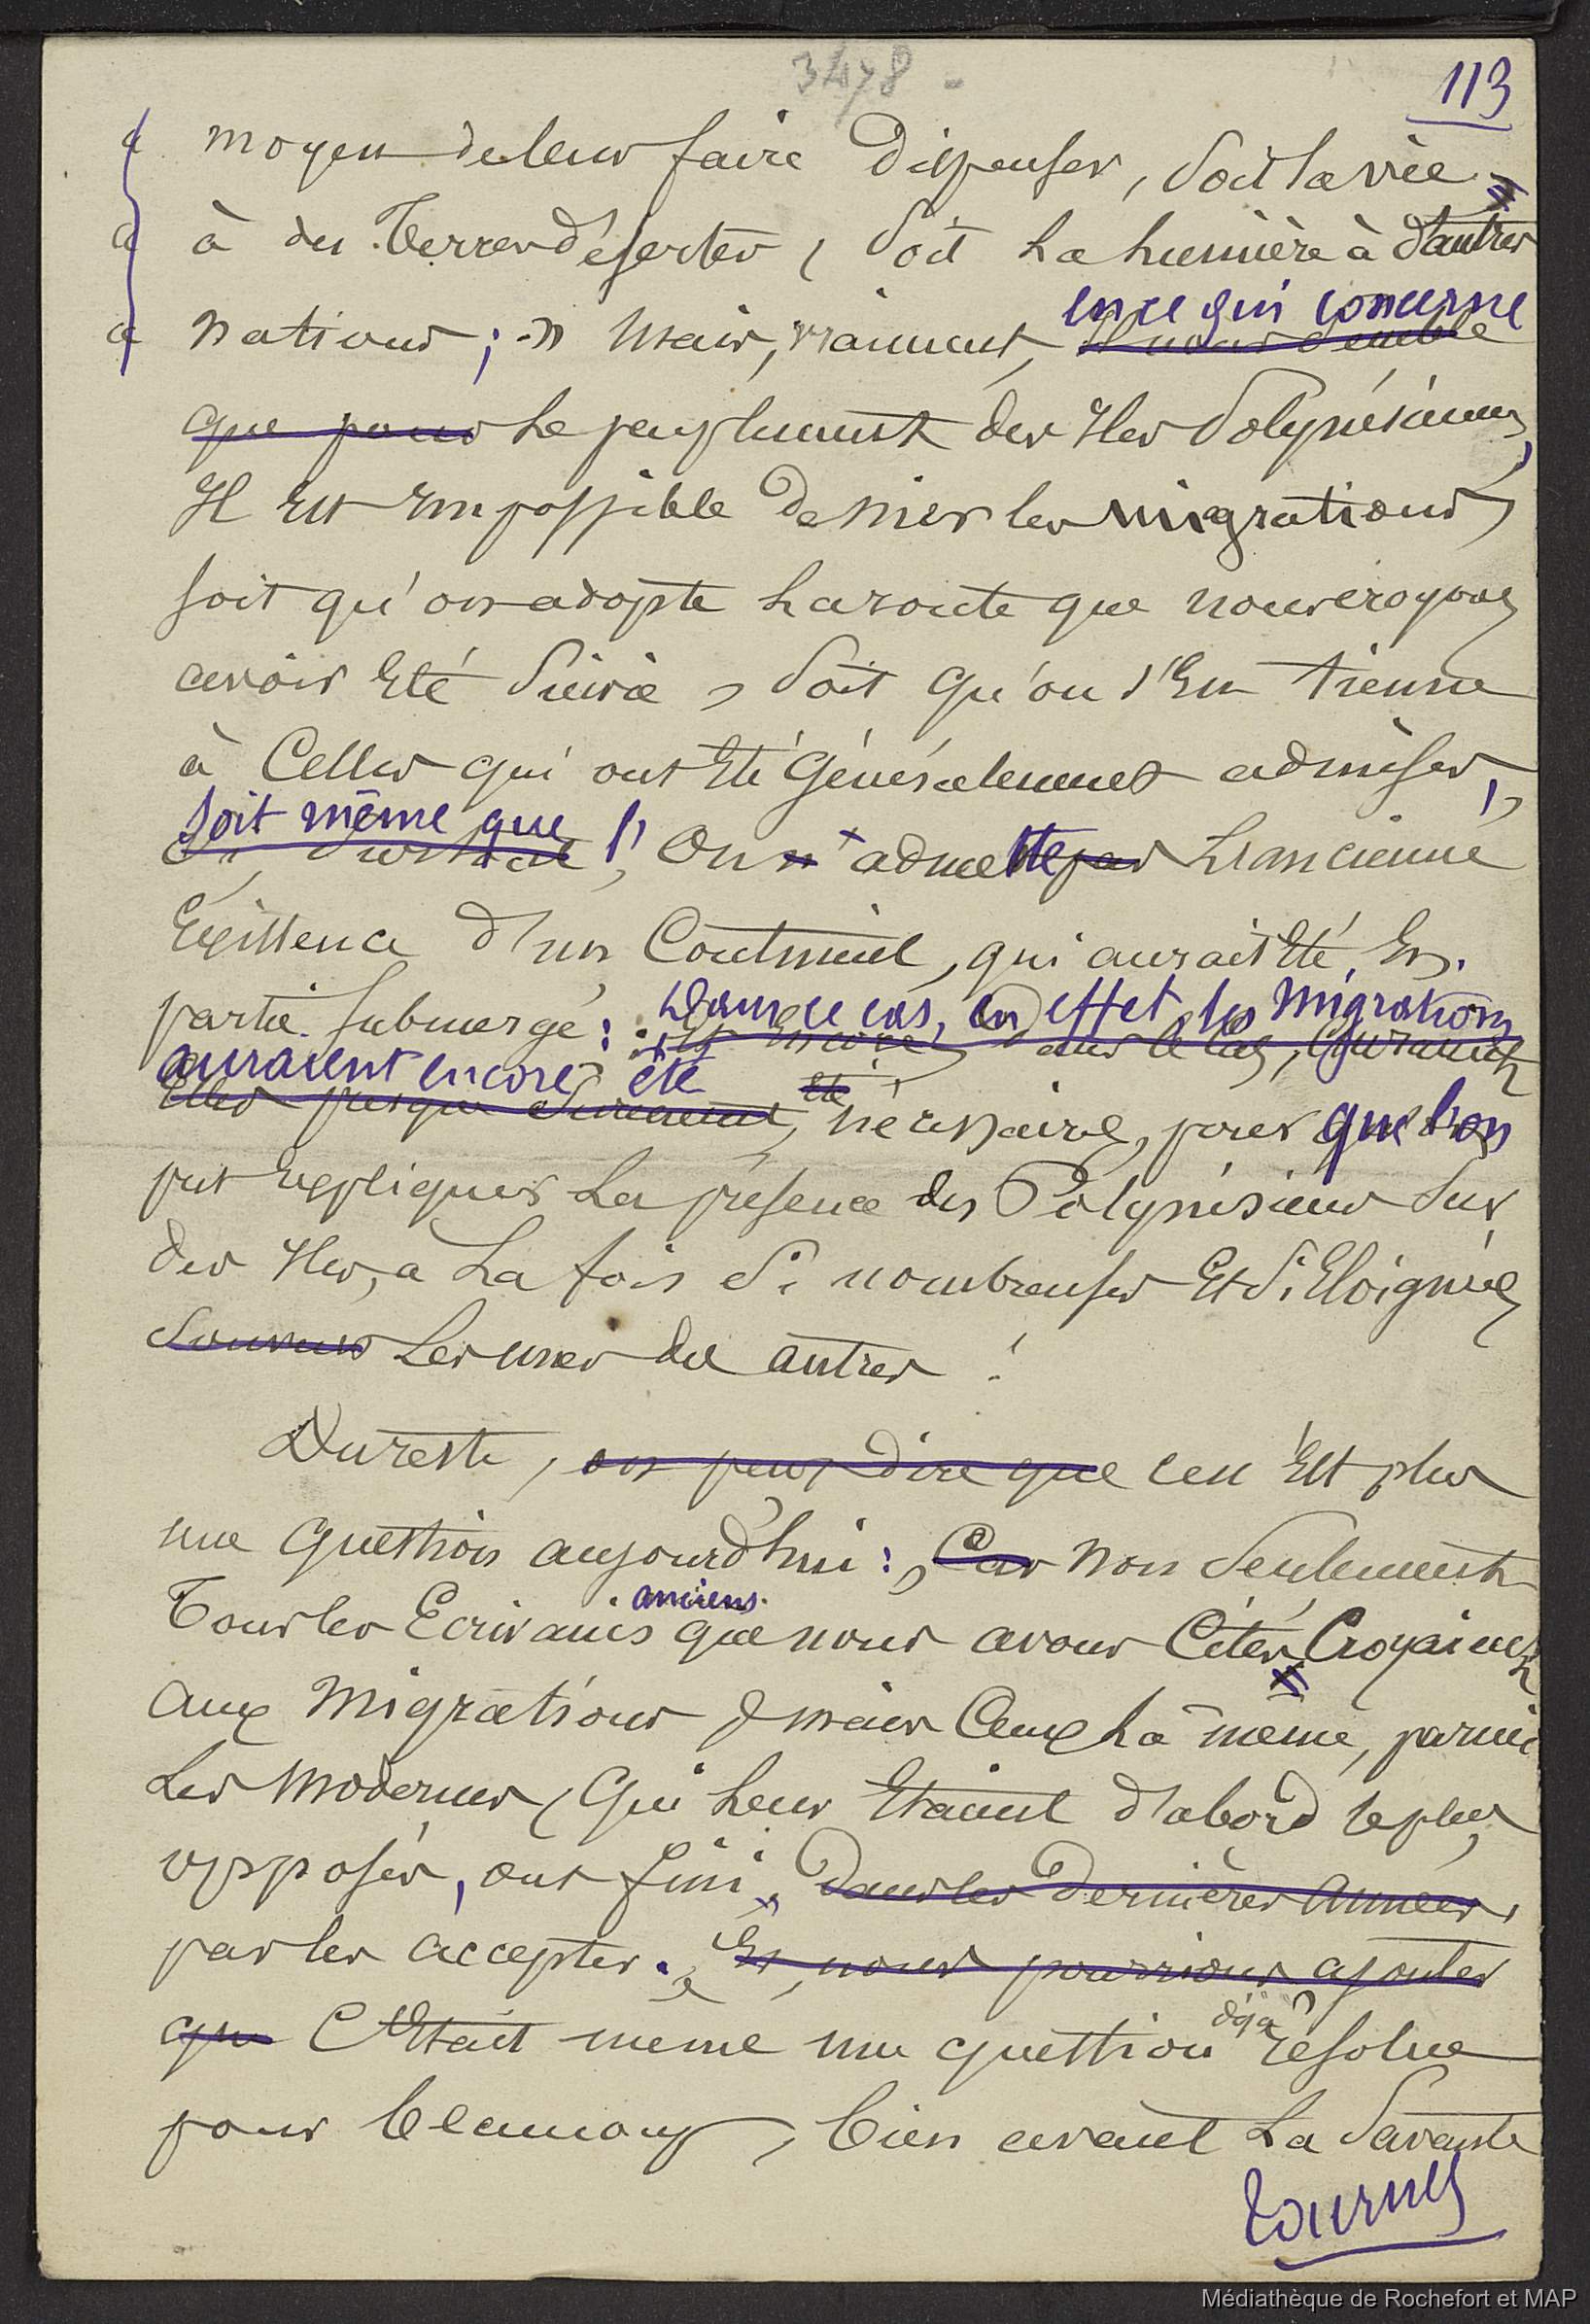 3478 -
113
« moyen de leur faire dispenser, soit la vie
« à des Terres désertes, soit la lumière à d'autres
en ce qui concerne
« nations; » Mais, vraiment, il nous semble
que pour le peuplement des Iles Polynésiennes,
Il est Impossible de nier les migrations,
soit qu'on adopte la route que nous croyons
avoir Eté suivie, soit qu'on s'En tienne
à Celles qui ont Eté Généralement admises,
soit même que l'
on n'admette pas L'ancienne
Existence d'un Continent, qui aurait Eté, En
Dans ce cas, en effet, les migrations
partie submergé : Et Encore, dans ce Cas,
auraient encore été
Elles presque surement été nécessaires, pour que l'on
put Expliquer La présence des Polynésiens sur
des Iles, à La fois si nombreuses Et si Eloignées
souvent Les unes des autres !
Du reste, on peut dire que ce n'Est plus
une Question aujourd'hui : Car non seulement
anciens
Tous les Ecrivains que nous avons Cités Croyaient
aux Migrations, mais Ceux là même, parmi
Les Modernes, Qui Leur Etaient d'abord le plus
opposés, ont fini, dans les dernières années,
par les accepter. Et, nous pourrions ajouter
déjà
que C'Etait même une question résolue
pour beaucoup, bien avant La Savante
Tournez
Médiathèque de Rochefort et MAP